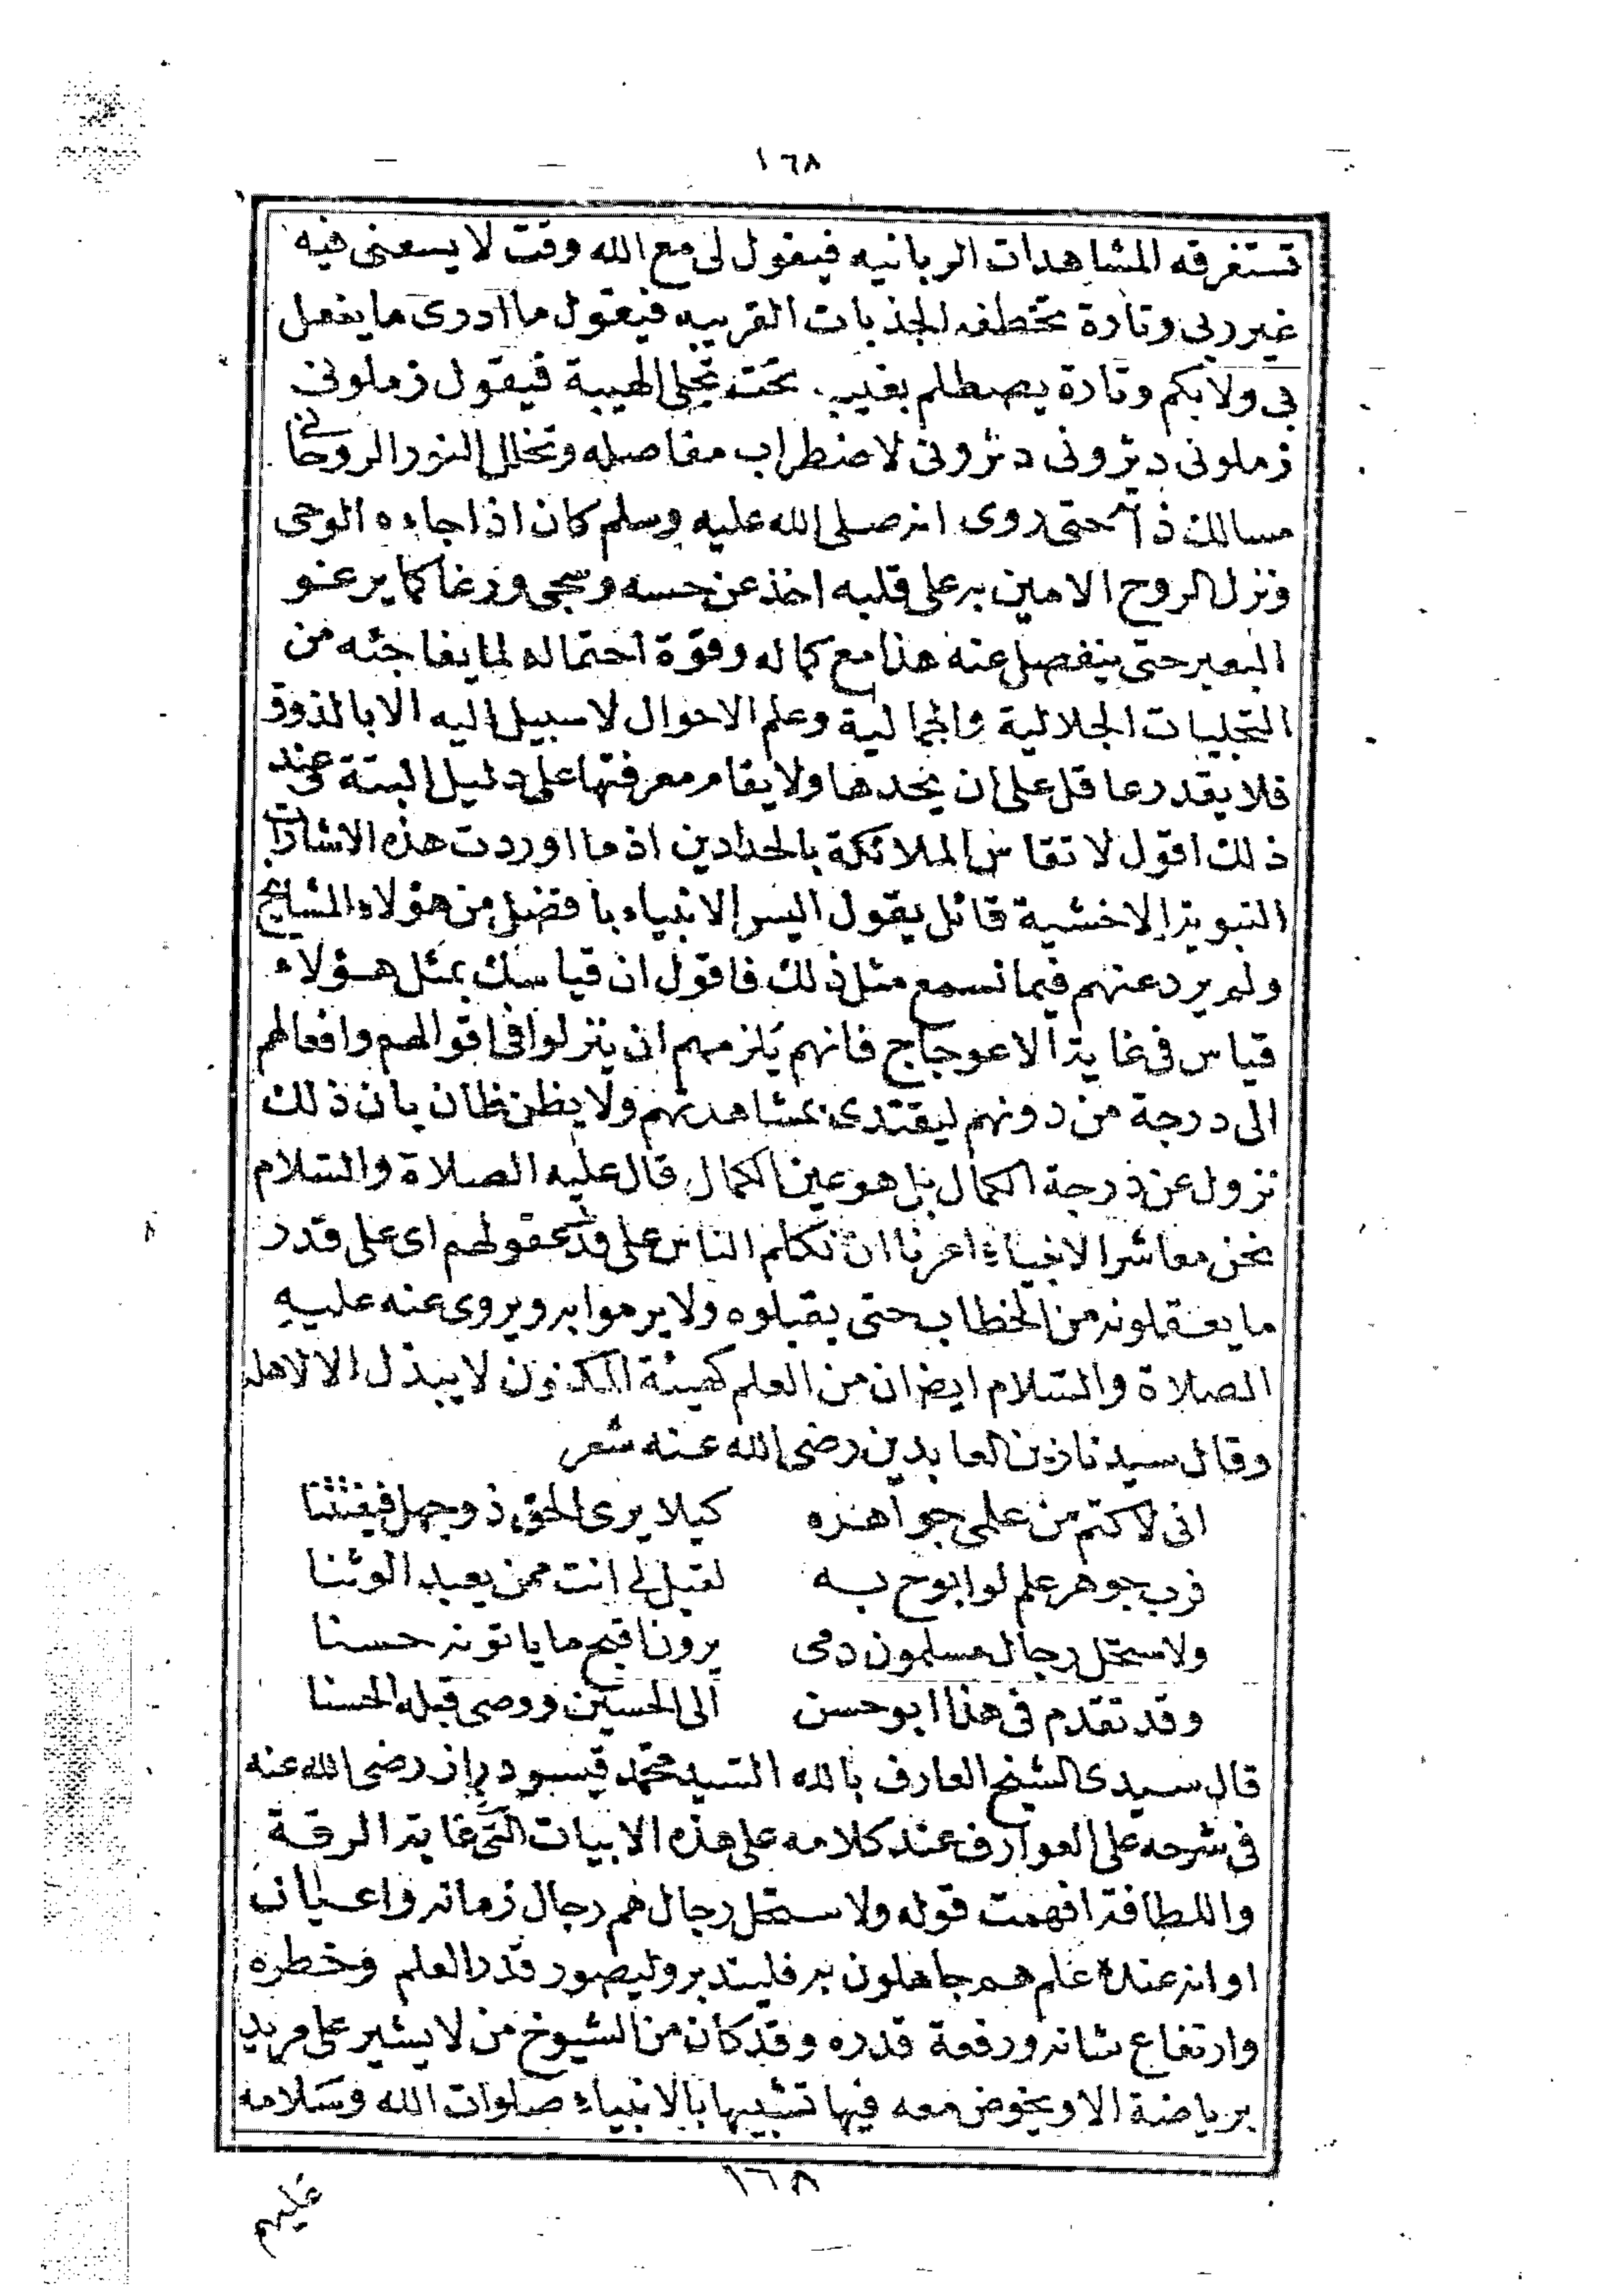 ١٦٨
تستغرقه المشاهدات الربانيه فيقول لى مع الله وقت لا يسعنى فيه
غير ربى وتارة تختطفه الجذبات القريبه فيقول ما ادرى ما يفعل
بى ولا بكم وتارة يصطلم بغيب تحت تجلى الهيبة فيقول زملونى
زملونى دثرونى دثرونى لاضطراب مفاصله وتخلل النور الروحانى
مسالك ذاته حتى روى انه صلى الله عليه وسلم كان اذا جاءه الوحى
ونزل الروح الامين به على قلبه اخذ عن حسه وسجى ورغا كما يرغو
البعير حتى ينفصل عنه هذا مع كماله وقوة احتماله لما يفاجئه من
التجليات الجلالية والجمالية وعلم الاحوال لا سبيل اليه الا بالذوق
فلا يقدر عاقل على ان يحدها ولا يقام معرفتها على دليل البتة عند
ذلك اقول لا تقاس الملائكة بالحدادين اذ ما اوردت هذه الاشارات
النبويه الا خشية قائل يقول اليس الانبياء بافضل من هؤلاء المشايخ
ولم يرد عنهم فيما نسمع مثل ذلك فاقول ان قياسك بمثل هؤلاء
قياس فى غاية الاعوجاج فانهم يلزمهم ان ينزلوا فى اقوالهم وافعالهم
الى درجة من دونهم ليقتدى بمشاهدتهم ولا يظن ظان بان ذلك
نزول عن درجة الكمال بل هو عين الكمال قال عليه الصلاة والسلام
نحن معاشر الانبياء امرنا ان نكلم الناس على قدر عقولهم اى على قدر
ما يعقلونه من الخطاب حتى يقبلوه ولا يرموا به ويروى عنه عليه
الصلاة والسلام ايضا ان من العلم كهيئة المكنون لا يبذل الا لاهله
وقال سيدنا زين العابدين رضى الله عنه شعر
انى لاكتم من علمى جواهره كيلا يرى الحق ذو جهل فيفتتنا
فرب جوهر علم لو ابوح به لقيل لى انت ممن يعبد الوثنا
ولاستحل رجال مسلمون دمى يرون اقبح ما ياتونه حسنا
وقد تقدم فى هذا ابو حسن الى الحسين ووصى قبله الحسنا
قال سيدى الشيخ العارف بالله السيد محمد قيسودراز رضى الله عنه
فى شرحه على العوارف عند كلامه على هذه الابيات التى غاية الرقة
واللطافة افهمت قوله ولاستحل رجال هم رجال زمانه واعيان
اوانه عنده علم هم جاهلون به فليتدبر وليصور قدر العلم وخطره
وارتفاع شانه ورفعة قدره وقد كان من الشيوخ من لا يشير على مريد
برياضة الا ويخوض معه فيها تشبيها بالانبياء صلوات الله وسلامه
١٦٨
عليهم